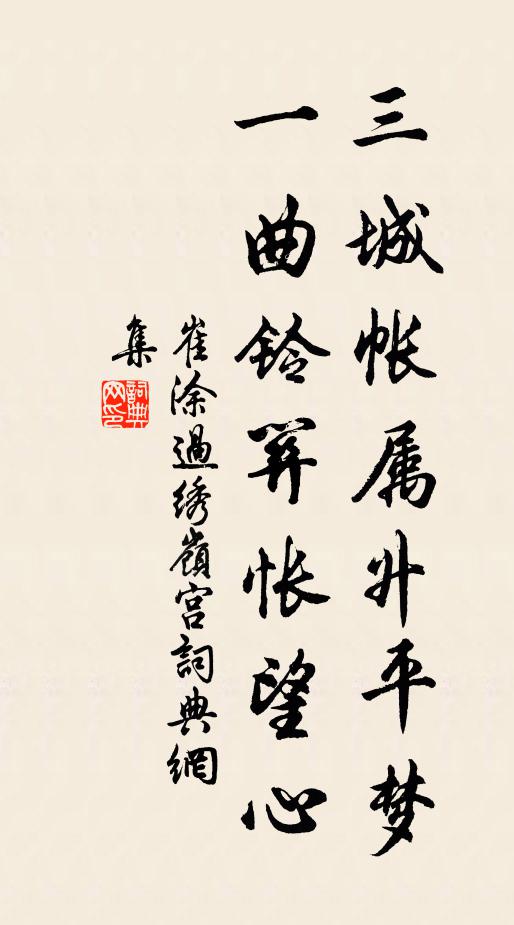 三城帐属升平梦
一曲铃关怅望心
崔涂過绣嶺宫詞典網
集
詞典网印